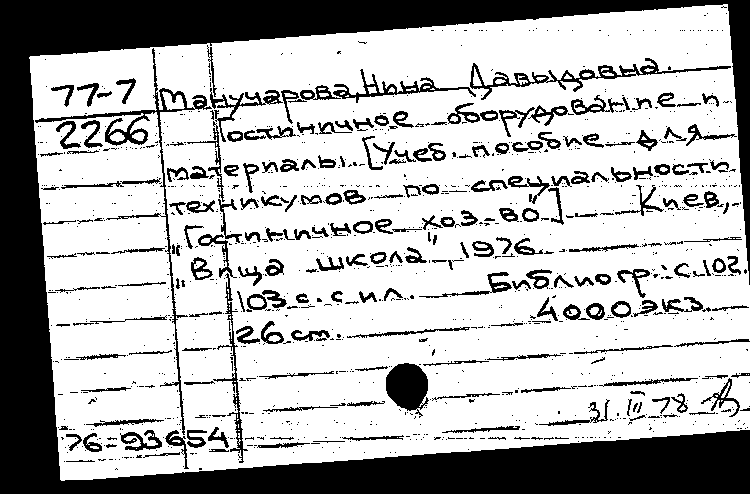 77-7 Манучарова, Нина Давыдовна.
2266 Гостиничное оборудование и
материалы. [Учеб. пособие для
техникумов по специальности
"Гостиничное хоз-во"] Киев,
"Вища школа", 1976.
103 с. с ил. Библиогр.: с. 102.
26 см. 4000 экз
31.III 78
76-93654